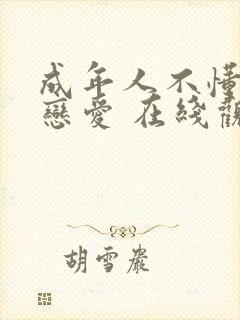 成年人不懂
戀愛 在綫觀
胡雪巖